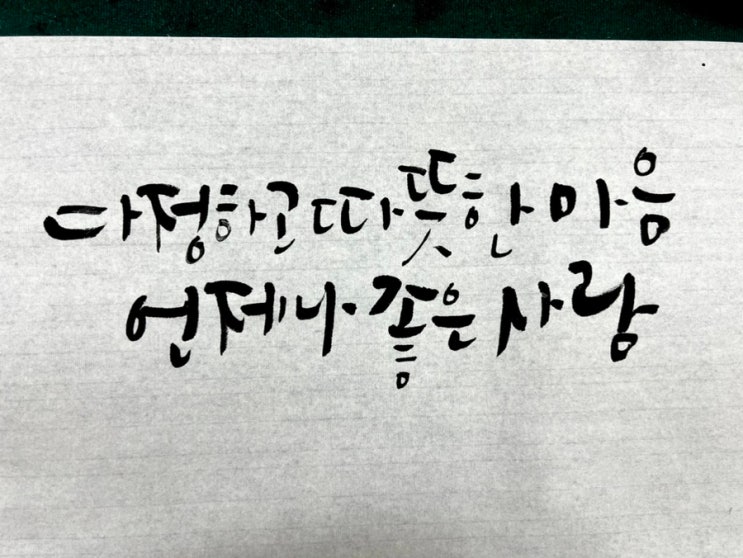 다정하고 따뜻한 마음
언제나 좋은 사람